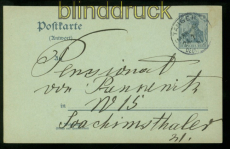 blinddruck
Postkarte
(Antwort)
Pensionat
von
in W 15
Joachimsthaler